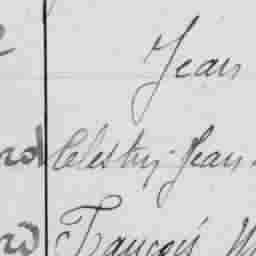 Jean
rd Célestin Jean
rd François M